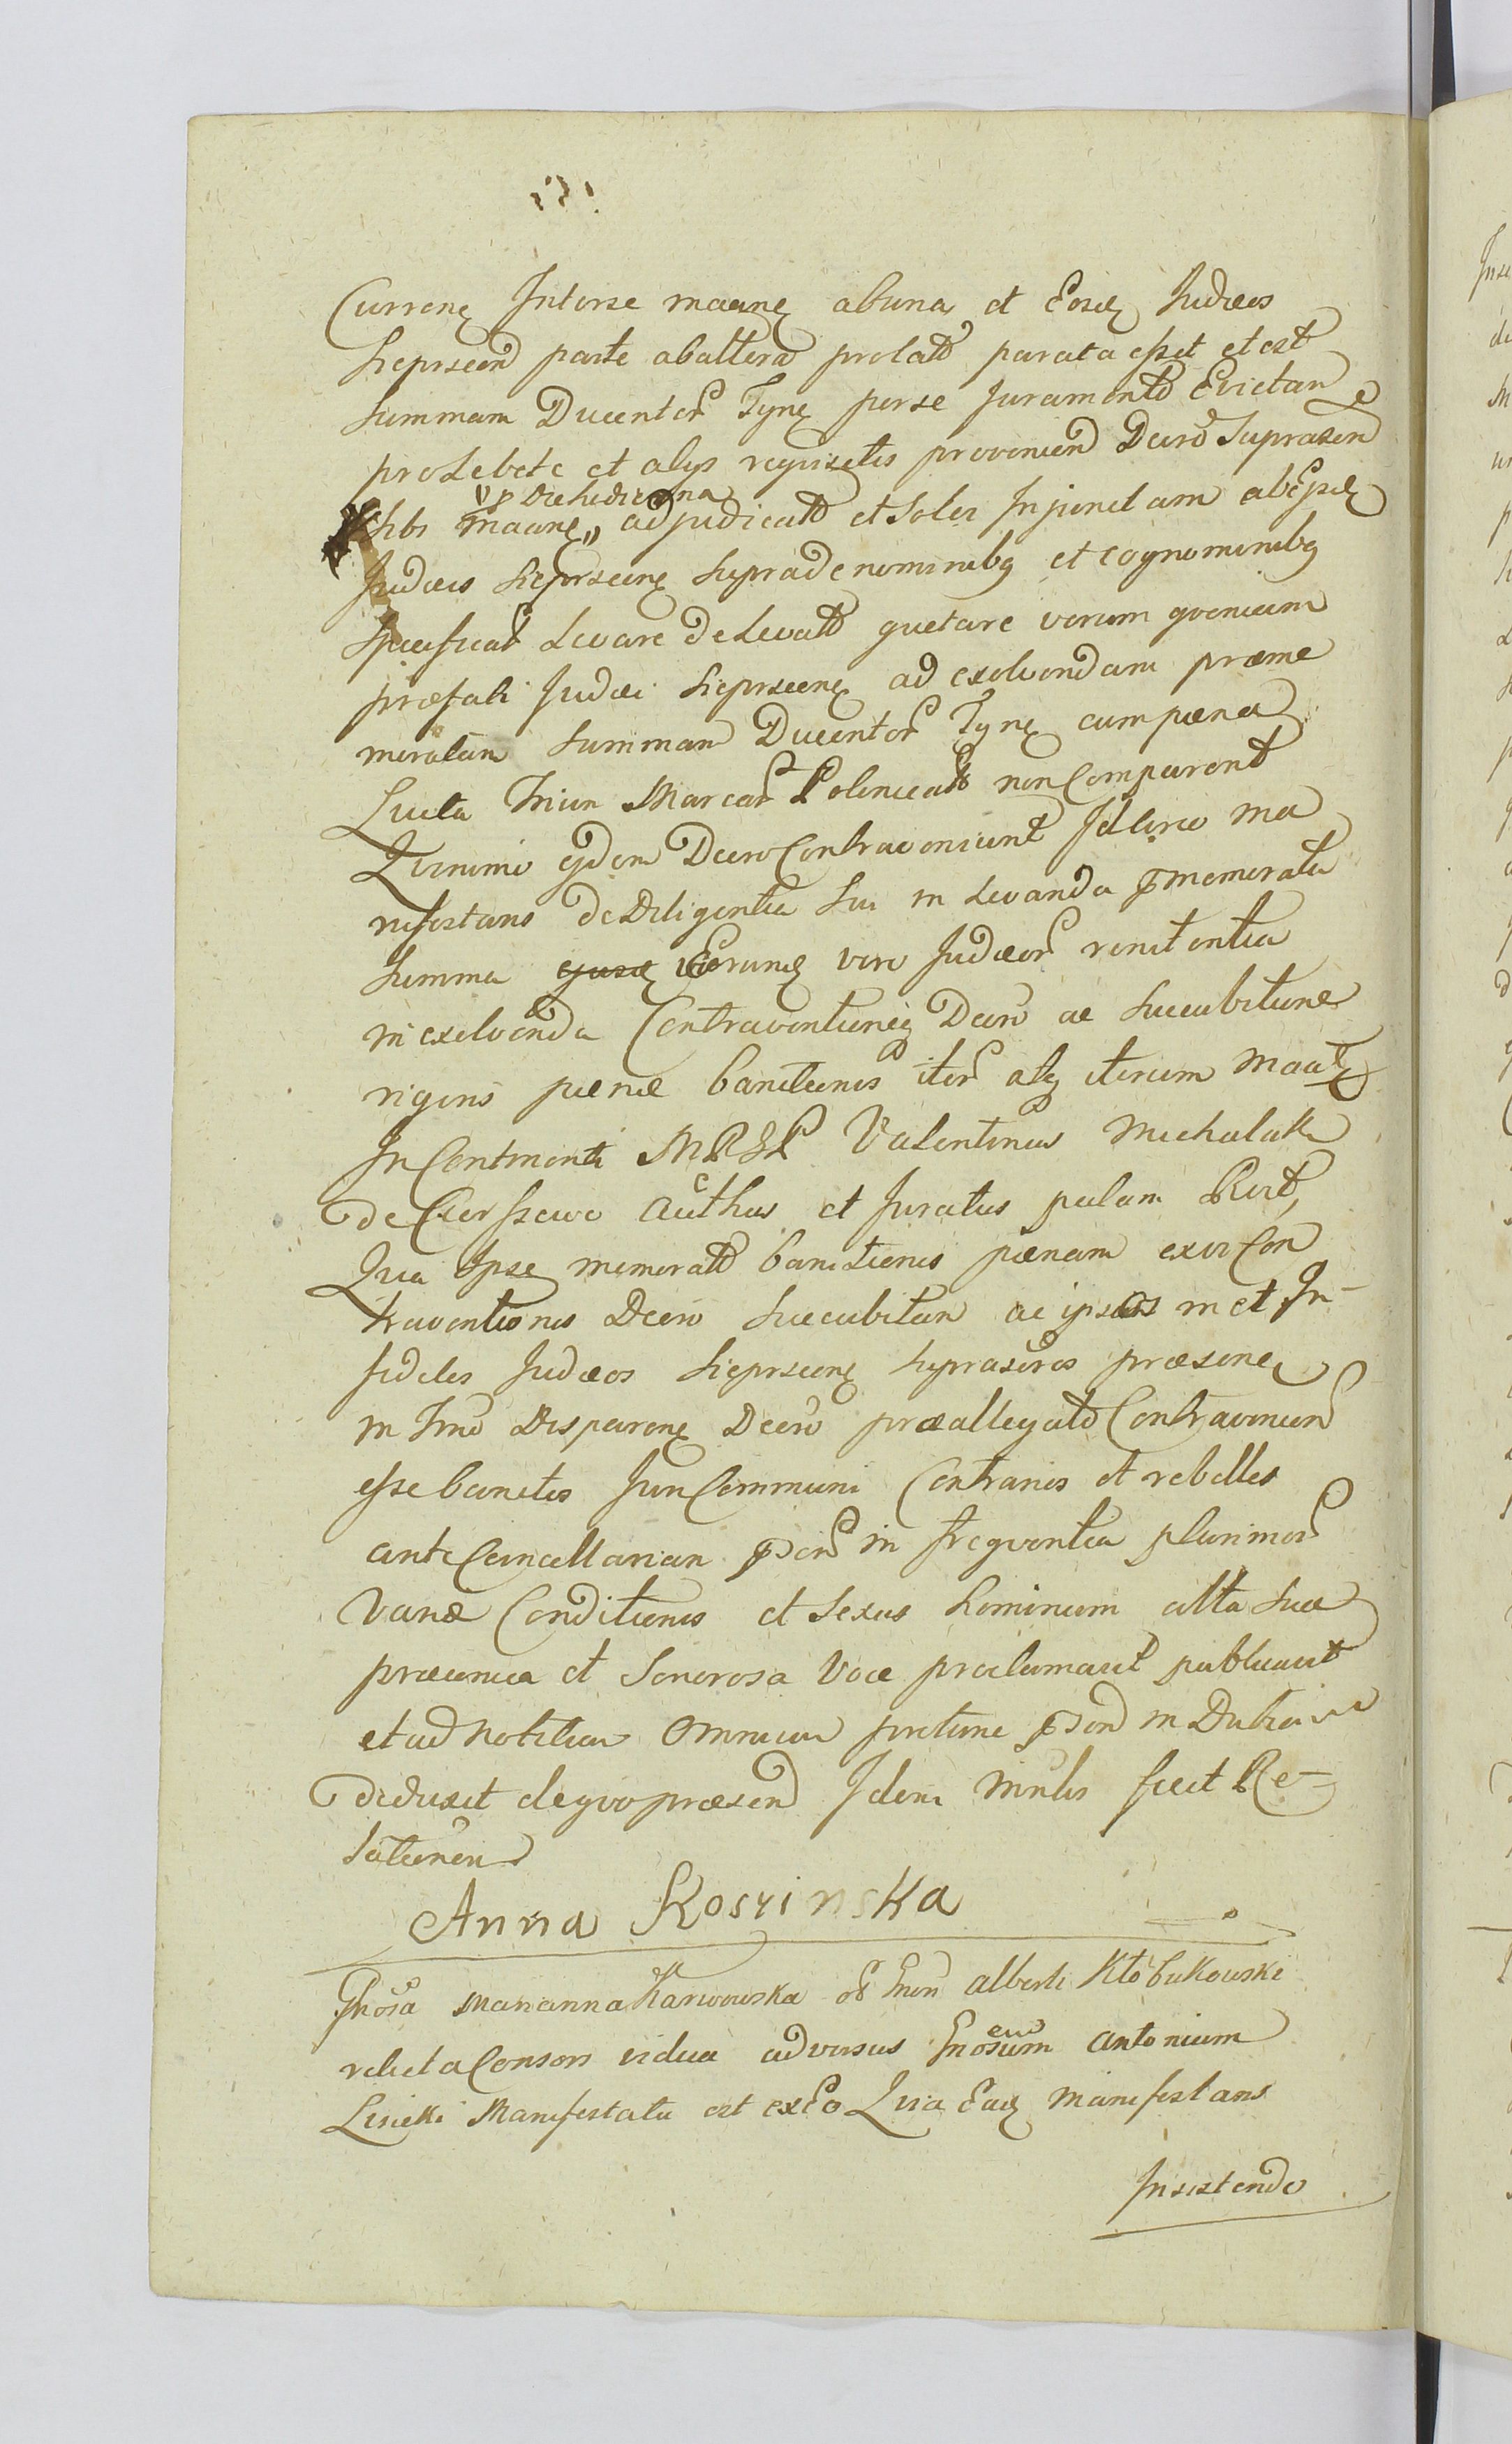 Currenꝫ Interse maanꝫ abuna et Eosdꝫ Judæos
Sieprscen parte abaltera prolatõ parata esset et est
summam Ducentor Tynꝫ perse Juramento Evictam
pro Lebete et alys requisitis provenien Decro Suprascri
Sibi maanꝫ „ adjudicato et Solvi Injunctam ab Eisdꝫ
v p die hodierna
Judæis Sieprscenꝫ supra de nominibꝫ et cognominibꝫ
Specificat Levare de Levato quetare verum qvoniam
præfati Judæi Sieprscenꝫ ad exolvendam præme
moratam Summam Ducentor Tynꝫ cum pæna
Lucta Trium Marcar Polonicat non Comparent
Quinimo ejdem Decro Contraveniunt Idcirco ma
nifestans de Diligentia Sui in Levanda pmemorata
Summa Eorundꝫ vero Judæor renitentia
in exolvenda Contraventioneqꝫ Decro ac Succubitione
rigoris pænæ banitionis iter atqꝫ iterum Maatꝫ
In Continenti MRGL Valentinus Michalak
de Czerssewo Authus et Juratus palam Rvit,
Quia Ipse memorato banitionis pænam ex vi Con
traventionis Decro Succubitam ac ipsos met In-
fideles Judæos Sieprscenꝫ Suprascros præsenꝫ
in Tmo Disparenꝫ Decro præallegato Contravenien
esse banitos Juri Communi Contrarios et rebelles
ante Cancellariam pser in freqventia plurimor
Variæ Conditionis et Sexus hominum alta Sua
præconica et Sonorosa Voce proclamavit publicavit
et ad notitiam Omnium
deduxit de qvo præsen Idem Minlis fecit Re-
lationem
Anna Koszinska
Gnosa Marianna Karwowska ol Gnsi Alberti Kłobukowski
relicta Consors vidua adversus Gnosum Antonium
Lisieki Manifestata est ex Eo Quia Eadꝫ manifestans
Insistendo